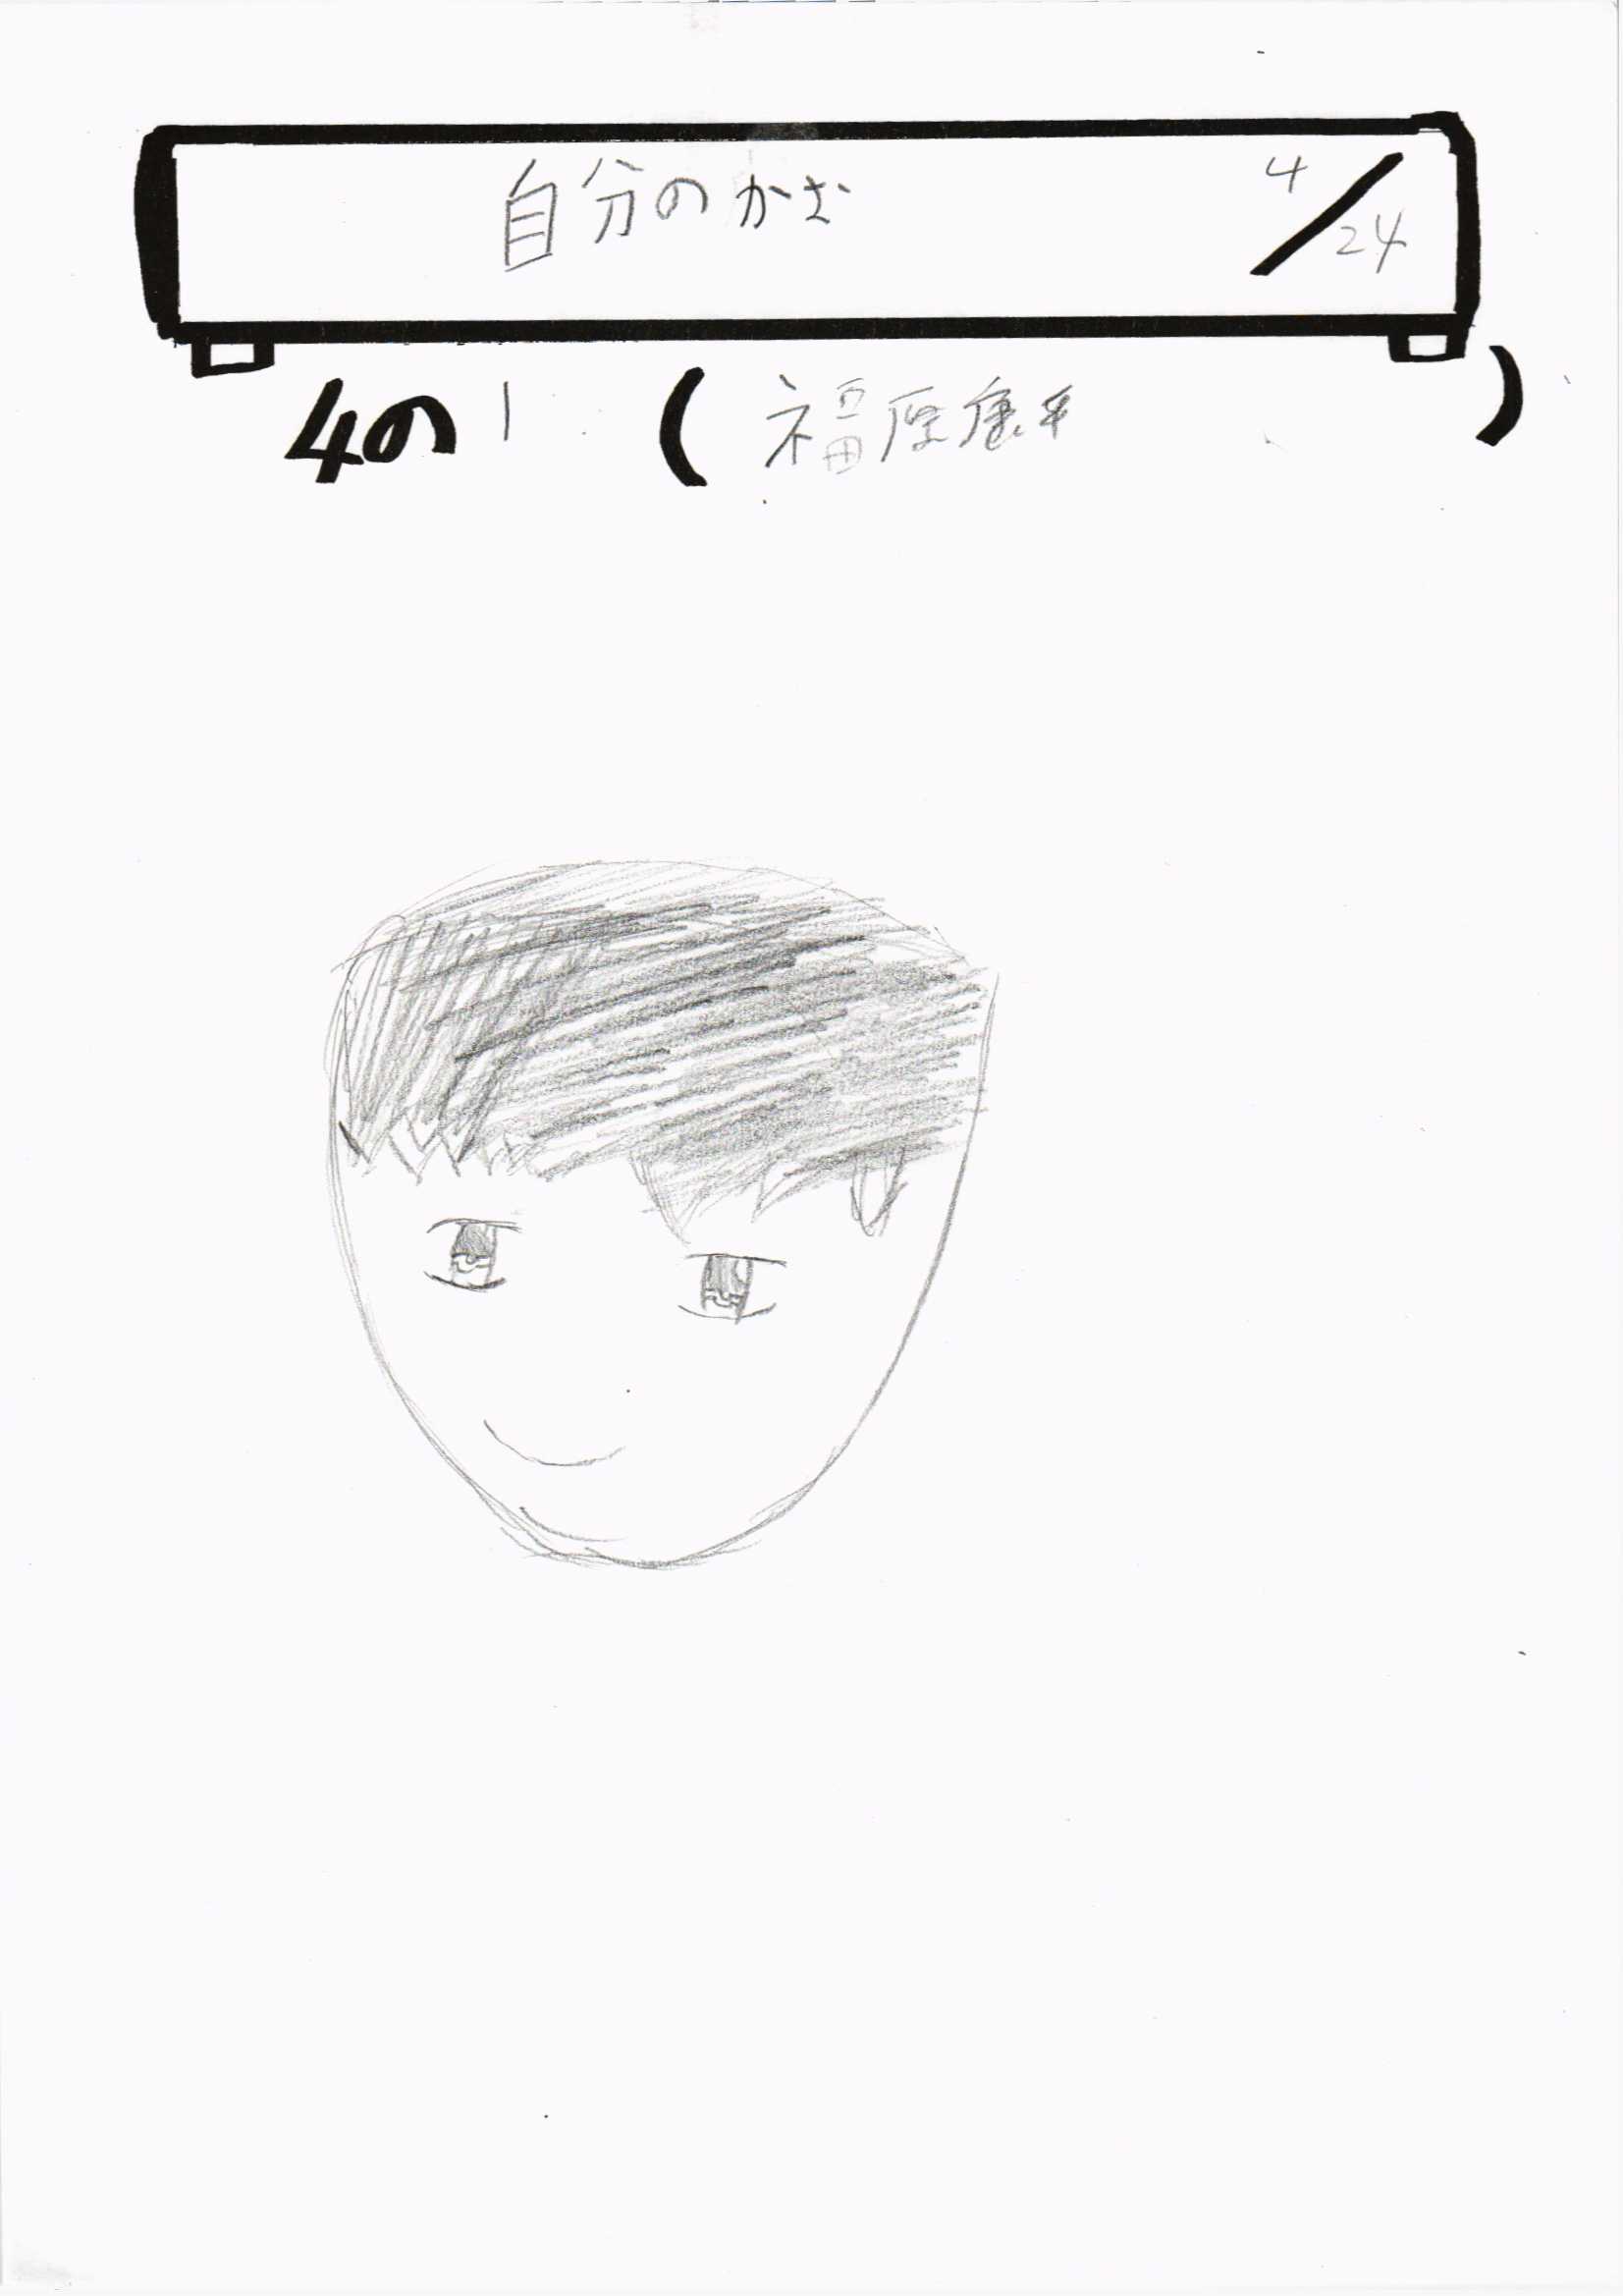 自分のかお 4/24
4の1 (福原康平)